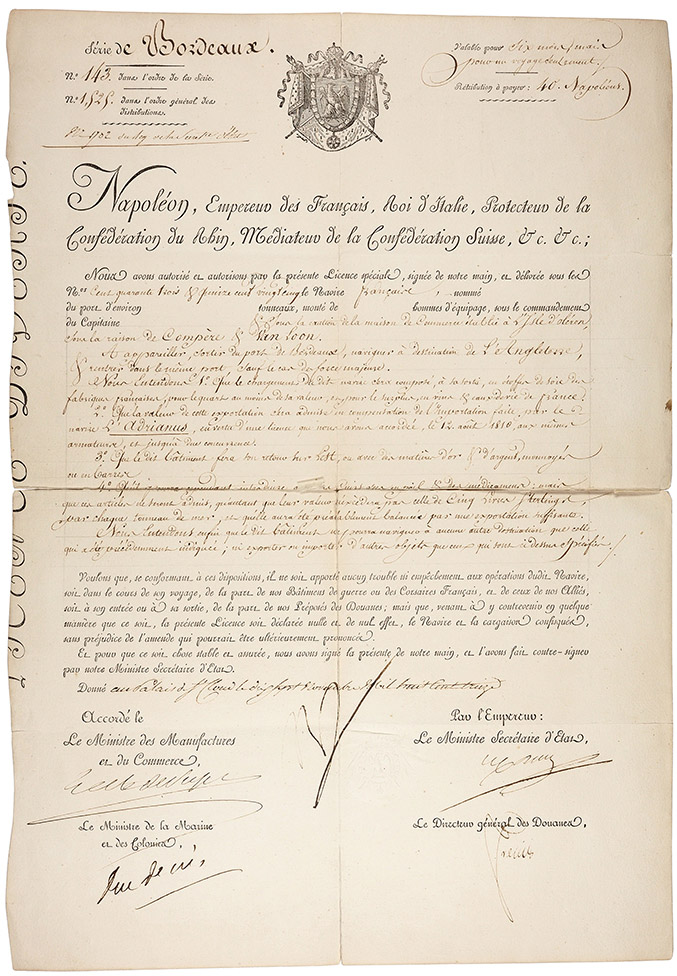 Série de Bordeaux.
N.º 143. dans l'ordre de la Série.
N.º 1,525. dans l'ordre général des
distributions.
Valable pour Six mois, mais
pour un voyage seulement.
Rétribution à payer: 40. Napoléons.
Napoléon, Empereur des Français, Roi d'Italie, Protecteur de la
Confédération du Rhin, Médiateur de la Confédération Suisse, &c. &c.;
Nous avons autorisé et autorisons par la présente Licence spéciale, signée de notre main, et délivrée sous les
N.os Cent quarante trois & Quinze cent vingt cinq le Navire française, nommé
du port d'environ tonneaux, monté de hommes d'équipage, sous le commandement
du Capitaine & sous la caution de la maison de Commerce établie à
sous la raison de Compère & Van Loon.
A appareiller, sortir du port de Bordeaux, naviguer à destination de L'Angleterre,
& rentrer dans le même port, sauf le cas de force majeure.
Nous Entendons 1.º Que le chargement dudit navire sera composé, à sa sortie, en étoffes de soie des
fabriques françaises, pour le quart au moins de sa valeur, et pour le surplus, en vins & eaux de vie de france.
2.º Que la valeur de cette exportation sera admise en compensation de l'Importation faite, par le
navire L'Adrianus, en vertu d'une licence que nous avons accordée, le 12 août 1810, aux mêmes
armateurs, et jusqu'à due concurrence.
3.º Que ledit Bâtiment fera son retour sur Lest, ou avec des matières d'or & d'argent, monnoyées
ou en barres
4.º & des médicaments; mais
que ces articles ne seront admis, qu'autant que leur valeur n'excèdera pas celle de Cinq Livres Sterlings,
par chaque tonneau de mer, et qu'elle aura été préalablement balancée par une exportation suffisante.
Nous Entendons enfin que le dit Bâtiment ne pourra naviguer à aucune autre destination que celle
qui a été précédemment indiquée; ni exporter ou importer d'autres objets que ceux qui sont ci dessus spécifiés.
Voulons que, se conformant à ces dispositions, il ne soit apporté aucun trouble ni empêchement aux opérations dudit Navire,
soit dans le cours de son voyage, de la part de nos Bâtimens de guerre ou des Corsaires Français, et de ceux de nos Alliés,
soit à son entrée ou à sa sortie, de la part de nos Préposés des Douanes; mais que, venant à y contrevenir en quelque
manière que ce soit, la présente Licence soit déclarée nulle et de nul effet, le Navire et la cargaison confisqués,
sans préjudice de l'amende qui pourrait être ultérieurement prononcée.
Et pour que ce soit chose stable et assurée, nous avons signé la présente de notre main, et l'avons fait contre-signer
par notre Ministre Secrétaire d'État.
Donné au Palais de St Cloud le dix sept novembre mil huit Cent treize
Accordé le
Le Ministre des Manufactures
et du Commerce,
Par l'Empereur:
Le Ministre Secrétaire d'État,
Le Ministre de la Marine
et des Colonies,
Le Directeur général des Douanes,